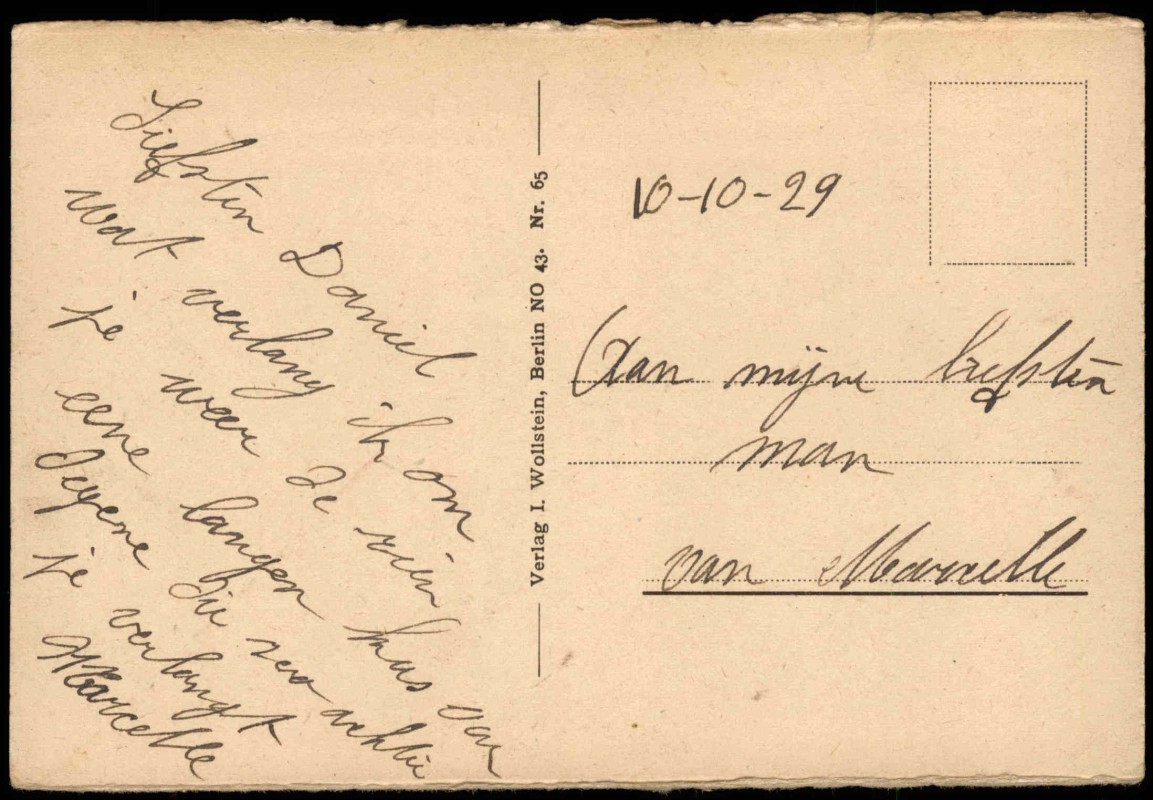 Liefsten Daniel
wat verlang ik om
je weer te zien
eene langen kus van
degene die zoo achter
je verlangt
Marcelle
Verlag I. Wollstein, Berlin NO 43. Nr. 65
10-10-29
Aan mijne liefsten
man
van Marcelle